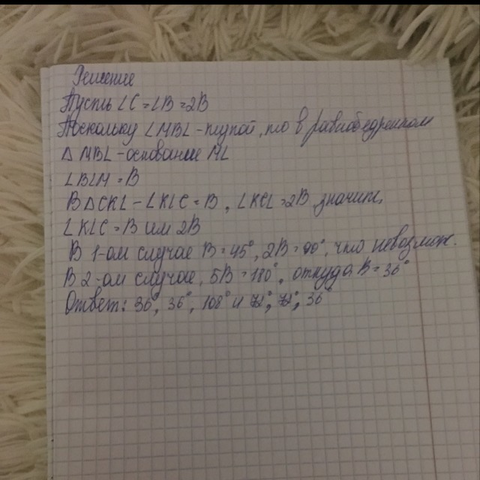 Решение
Пусть ∠C = ∠B = 2B
Поскольку ∠MBL - тупой, то в равнобедренном
Δ MBL - основание ML
∠BLM = B
В ΔCKL - ∠KLC = B, ∠KCL = 2B, значит,
∠KLC = B или 2B
В 1-ом случае B = 45°, 2B = 90°, что невозмож.
В 2-ом случае, 5B = 180°, откуда B = 36°
Ответ: 36°, 36°, 108° и 72°, 72°, 36°